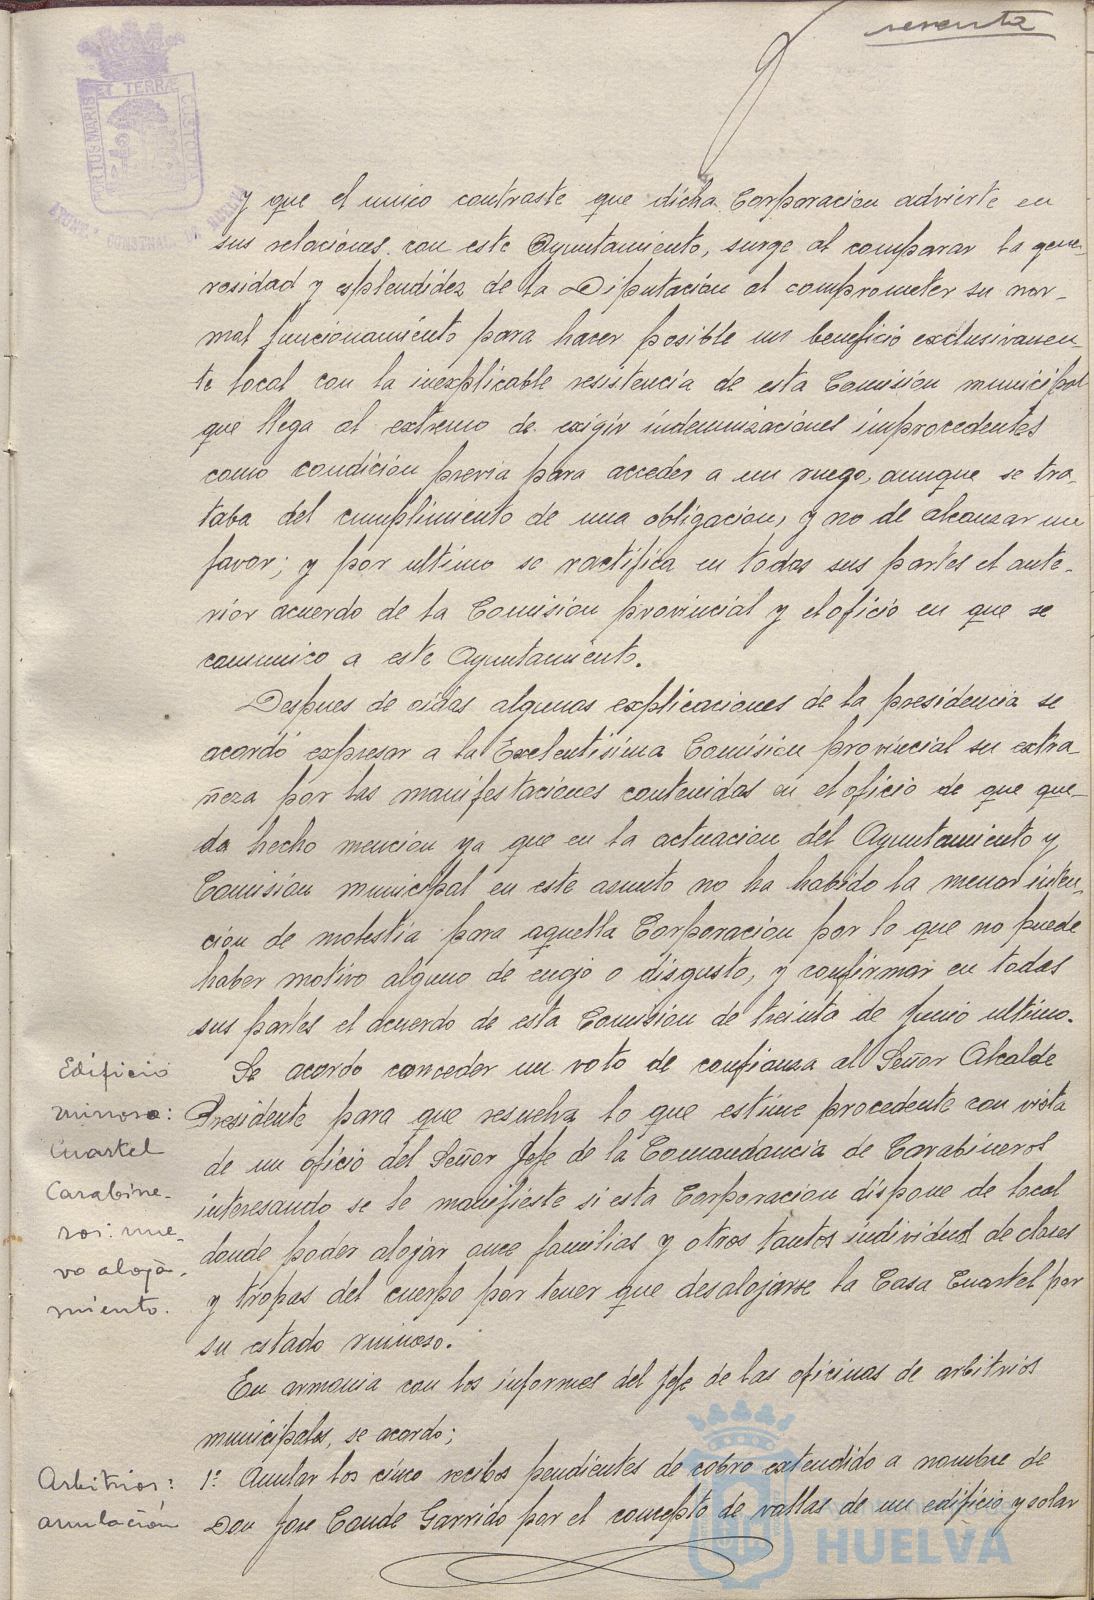 sesenta
PORTUS MARIS ET TERRÆ CUSTODIA
y que el unico contraste que dicha Corporacion advierte en
sus relaciones con este Ayuntamiento, surge al comparar la gene-
rosidad y esplendidez de la Diputación al comprometer su nor-
mal funcionamiento para hacer posible un beneficio exclusivamen-
te local con la inexplicable resistencia de esta Comisión municipal
que llega al extremo de exigir indemnizaciones improcedentes
como condición previa para acceder a un ruego, aunque se tra-
taba del cumplimiento de una obligacion, y no de alcanzar un
favor; y por ultimo se ractifica en todas sus partes el ante-
rior acuerdo de la Comision provincial y el oficio en que se
comunico a este Ayuntamiento.
Despues de oidas algunas explicaciones de la presidencia se
acordó expresar a la Exelentisima Comision provincial su extra-
ñeza por las manifestaciones contenidas en el oficio de que que-
da hecho mencion ya que en la actuacion del Ayuntamiento y
Comision municipal en este asunto no ha habido la menor inten-
cion de molestia para aquella Corporación por lo que no puede
haber motivo alguno de enojo o disgusto, y confirmar en todas
sus partes el acuerdo de esta Comision de treinta de Junio ultimo.
Edificio
ruinoso:
Cuartel
Carabine-
ros: nue-
vo aloja-
miento.
Se acordo conceder un voto de confianza al Señor Alcalde
Presidente para que resuelva lo que estime procedente con vista
de un oficio del Señor Jefe de la Comandancia de Carabineros
interesando se le manifieste si esta Corporacion dispone de local
donde poder alojar once familias y otros tantos individuos de clases
y tropas del cuerpo por tener que desalojarse la Casa Cuartel por
su estado ruinoso.
En armonia con los informes del Jefe de las oficinas de arbitrios
municipales, se acordo;
Arbitrios:
anulación
1º Anular los cinco recibos pendientes de cobro extendido a nombre de
Don Jose Conde Garrido por el concepto de vallas de un edificio y solar
HUELVA